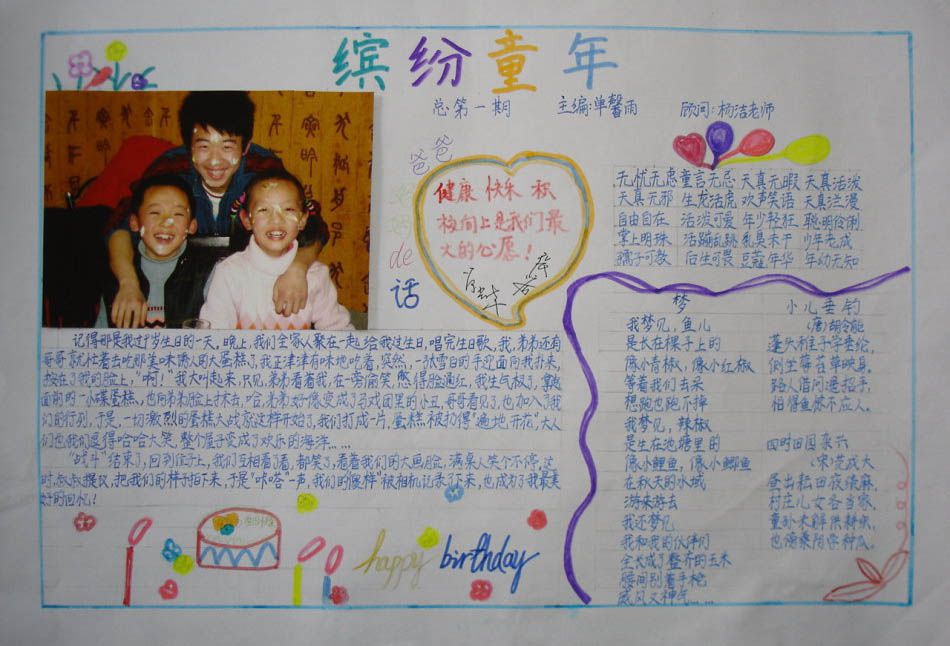 缤纷童年
总第一期 主编:单馨雨 顾问:杨洁老师
爸爸
妈妈
de
话
健康 快乐 积
极向上是我们最
大的心愿!
无忧无虑 童言无忌 天真无暇 天真活泼
天真无邪 生龙活虎 欢声笑语 天真烂漫
自由自在 活泼可爱 年少轻狂 聪明伶俐
掌上明珠 活蹦乱跳 乳臭未干 少年老成
孺子可教 后生可畏 豆蔻年华 年幼无知
记得那是我过7岁生日的一天。晚上,我们全家人聚在一起给我过生日,唱完生日歌,我、弟弟还有
哥哥就忙着去吃那美味诱人的大蛋糕了,我正津津有味地吃着,突然,一张雪白的手迎面向我扑来,
按在了我的脸上,“啊!”我大叫起来,只见弟弟看着我,在一旁偷笑,憋得脸通红,我生气极了,拿起
面前的一小碟蛋糕,也向弟弟脸上抹去,哈,弟弟好像变成了马戏团里的小丑,哥哥看见了,也加入了我
们的行列,于是,一切激烈的蛋糕大战就这样开始了,我们打成一片,蛋糕被打得“遍地开花”,大人
们也我们逗得哈哈大笑,整个屋子变成了欢乐的海洋……
“战斗”结束了,回到位子上,我们互相看了看,都笑了,看着我们的大画脸,满桌人笑个不停,这
时,叔叔提议,把我们的样子拍下来,于是“咔嗒”一声,我们的傻样被相机记录了下来,也成为了我最美
好的回忆!
happy birthday
梦
我梦见,鱼儿
是长在棵子上的
像小青椒,像小红椒
等着我们去采
想跑也跑不掉
我梦见,辣椒
是生在池塘里的
像小鲤鱼,像小鲫鱼
在秋天的水域
游来游去
我还梦见
我和我的伙伴们
全长成了整齐的玉米
腰间别着手枪
威风又神气……
小儿垂钓
(唐)胡令能
蓬头稚子学垂纶,
侧坐莓苔草映身。
路人借问遥招手,
怕得鱼惊不应人。
四时田园杂兴
(宋)范成大
昼出耘田夜绩麻,
村庄儿女各当家。
童孙未解供耕织,
也傍桑阴学种瓜。